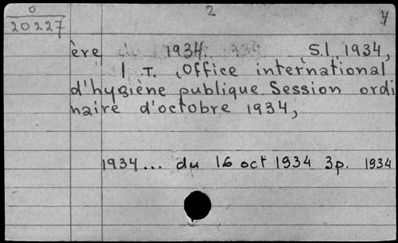 0
20227
2
y
ère de 1934. 1934 S.l. 1934,
1 T. Office international
d'hygiène publique Session ordi
naire d'octobre 1934,
1934... du 16 oct 1934 3p. 1934